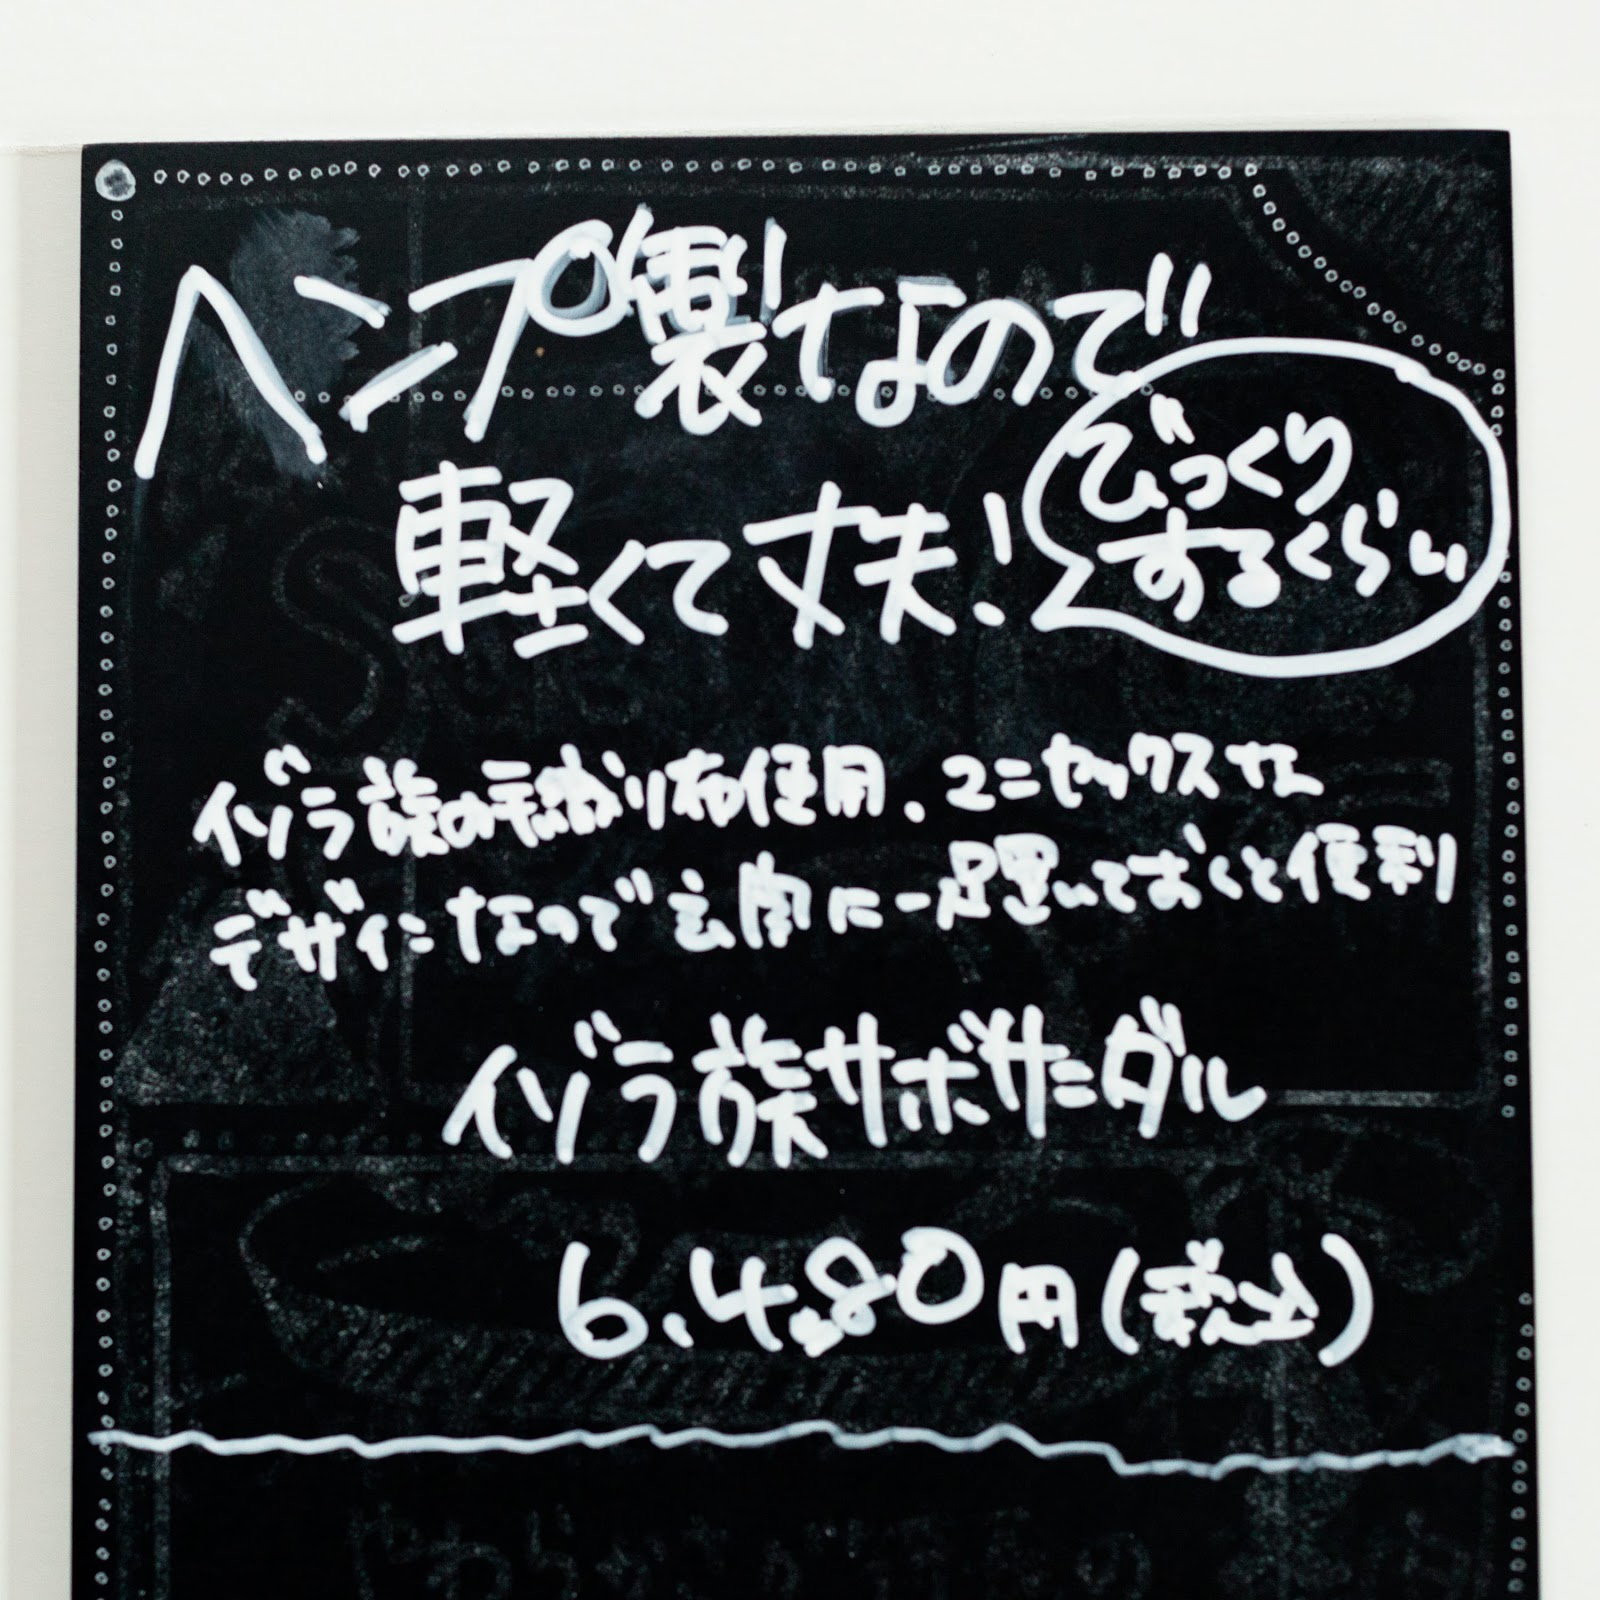 ヘンプ製なので
軽くて丈夫!
びっくり
するくらい
イゾラ族の手織り布使用.ユニセックスな
デザインなので玄関に一足置いておくと便利
イゾラ族サボサンダル
6.480円(税込)